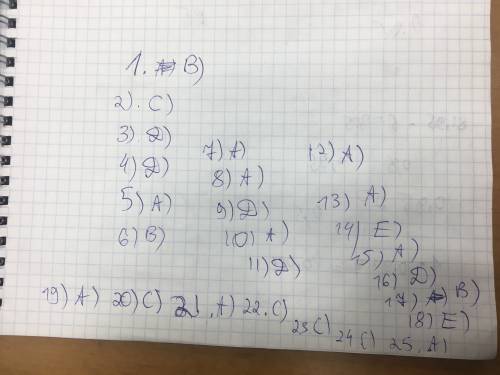 1. B)
2). C)
3) D)
4) D)
5) A)
6) B)
7) A)
8) A)
9) D)
10) A)
11) D)
12) A)
13) A)
14) E)
15) A)
16) D)
17) B)
18) E)
19) A) 20) C) 21. A) 22. C)
23 C)
24 C) 25. A)